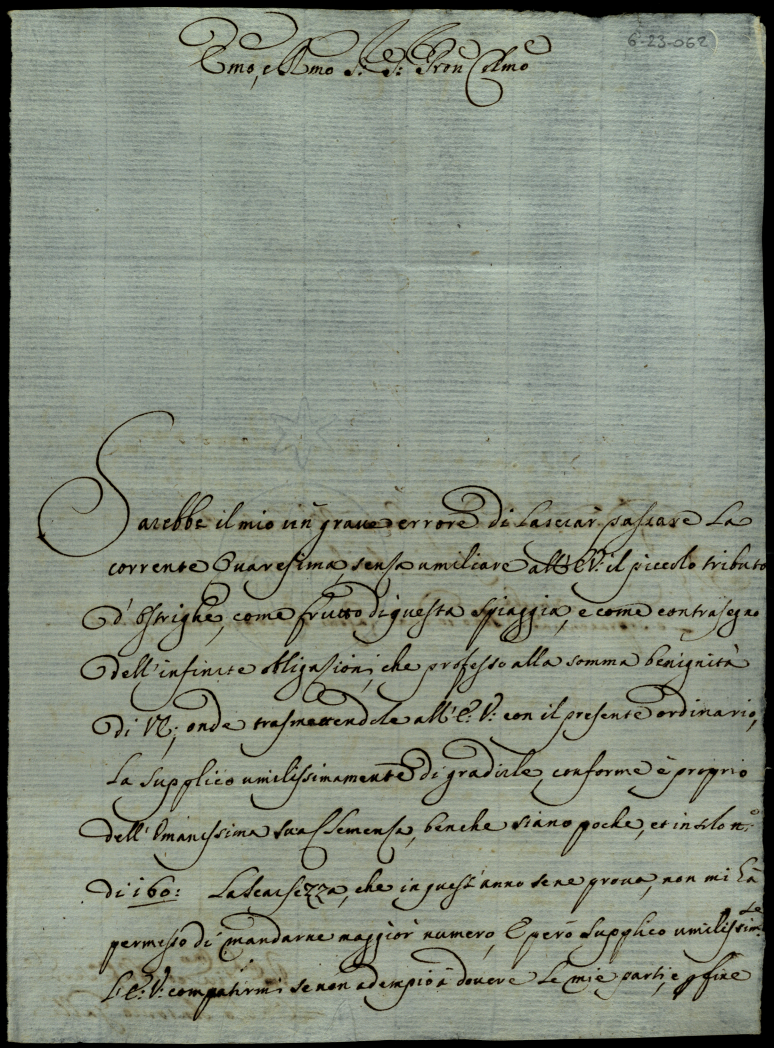 6-23-062
Emo, e Rmo Sr: Sr: Pron Colmo
Sarebbe il mio un grave errore di lasciar passare la
corrente Quaresima, senza umiliare all'E: V: il piccolo tributo
d'Ostrighe, come frutto di questa spiaggia, e come contrasegno
dell'infinite obligazioni, che professo alla somma benignità
di VE; onde trasmettendole all'E: V: con il presente ordinario,
la supplico umilissimamente di gradirle, conforme è proprio
dell'Umanissima sua Clemenza, benche siano poche, et in solo n.o
di 160: La scarsezza, che in quest'anno se ne prova, non mi hà
permesso di mandarne maggior numero, E però supplico umilissim.te
L'E: V: compatirmi se non adempio à dovere le mie parti, e p fine